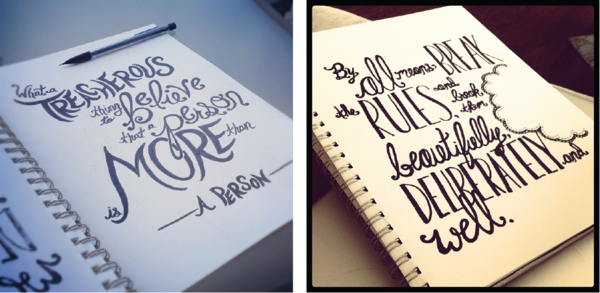 What a
TREACHEROUS
thing to believe
that a person
is MORE than
A PERSON
By all means, BREAK
the RULES, and break
them
beautifully,
DELIBERATELY, and
well.